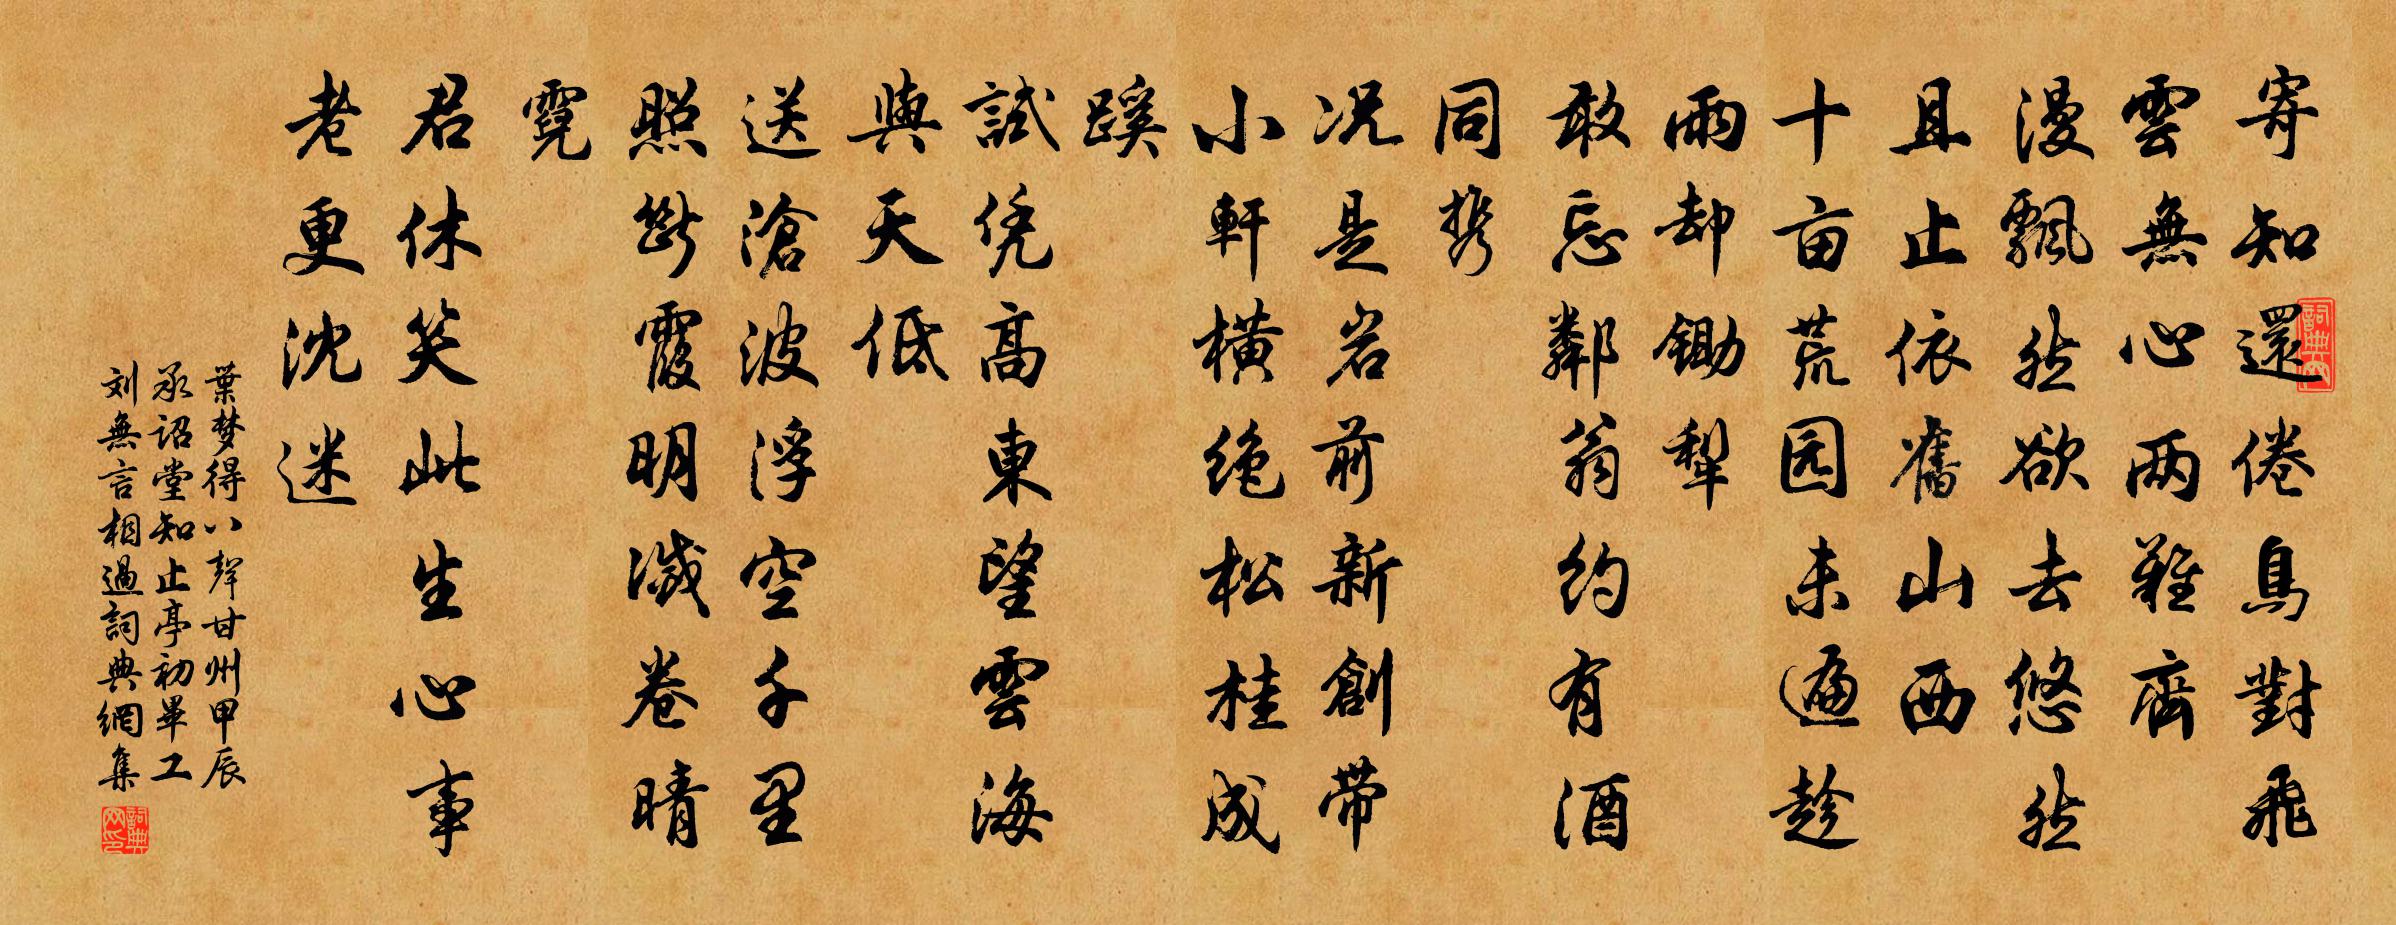 寄知還倦鳥對飛
雲無心两難齊
漫飄然欲去悠然
且止依舊山西
十亩荒园未遍趁
雨却鋤犁
敢忘鄰翁約有酒
同携
况是岩前新創带
小軒橫絶松桂成
蹊
試凭高東望雲海
與天低
送滄波浮空千里
照斷霞明滅卷晴
霓
君休笑此生心事
老更沈迷
葉梦得八聲甘州甲辰
承詔堂知止亭初畢工
刘無言相過詞典網集
詞典网
詞典网印